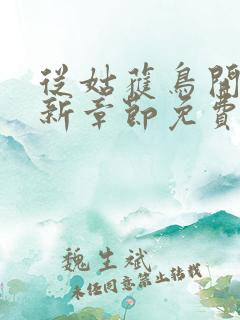 從姑獲鳥開
新章節免費
魏生斌
未經同意禁止轉載